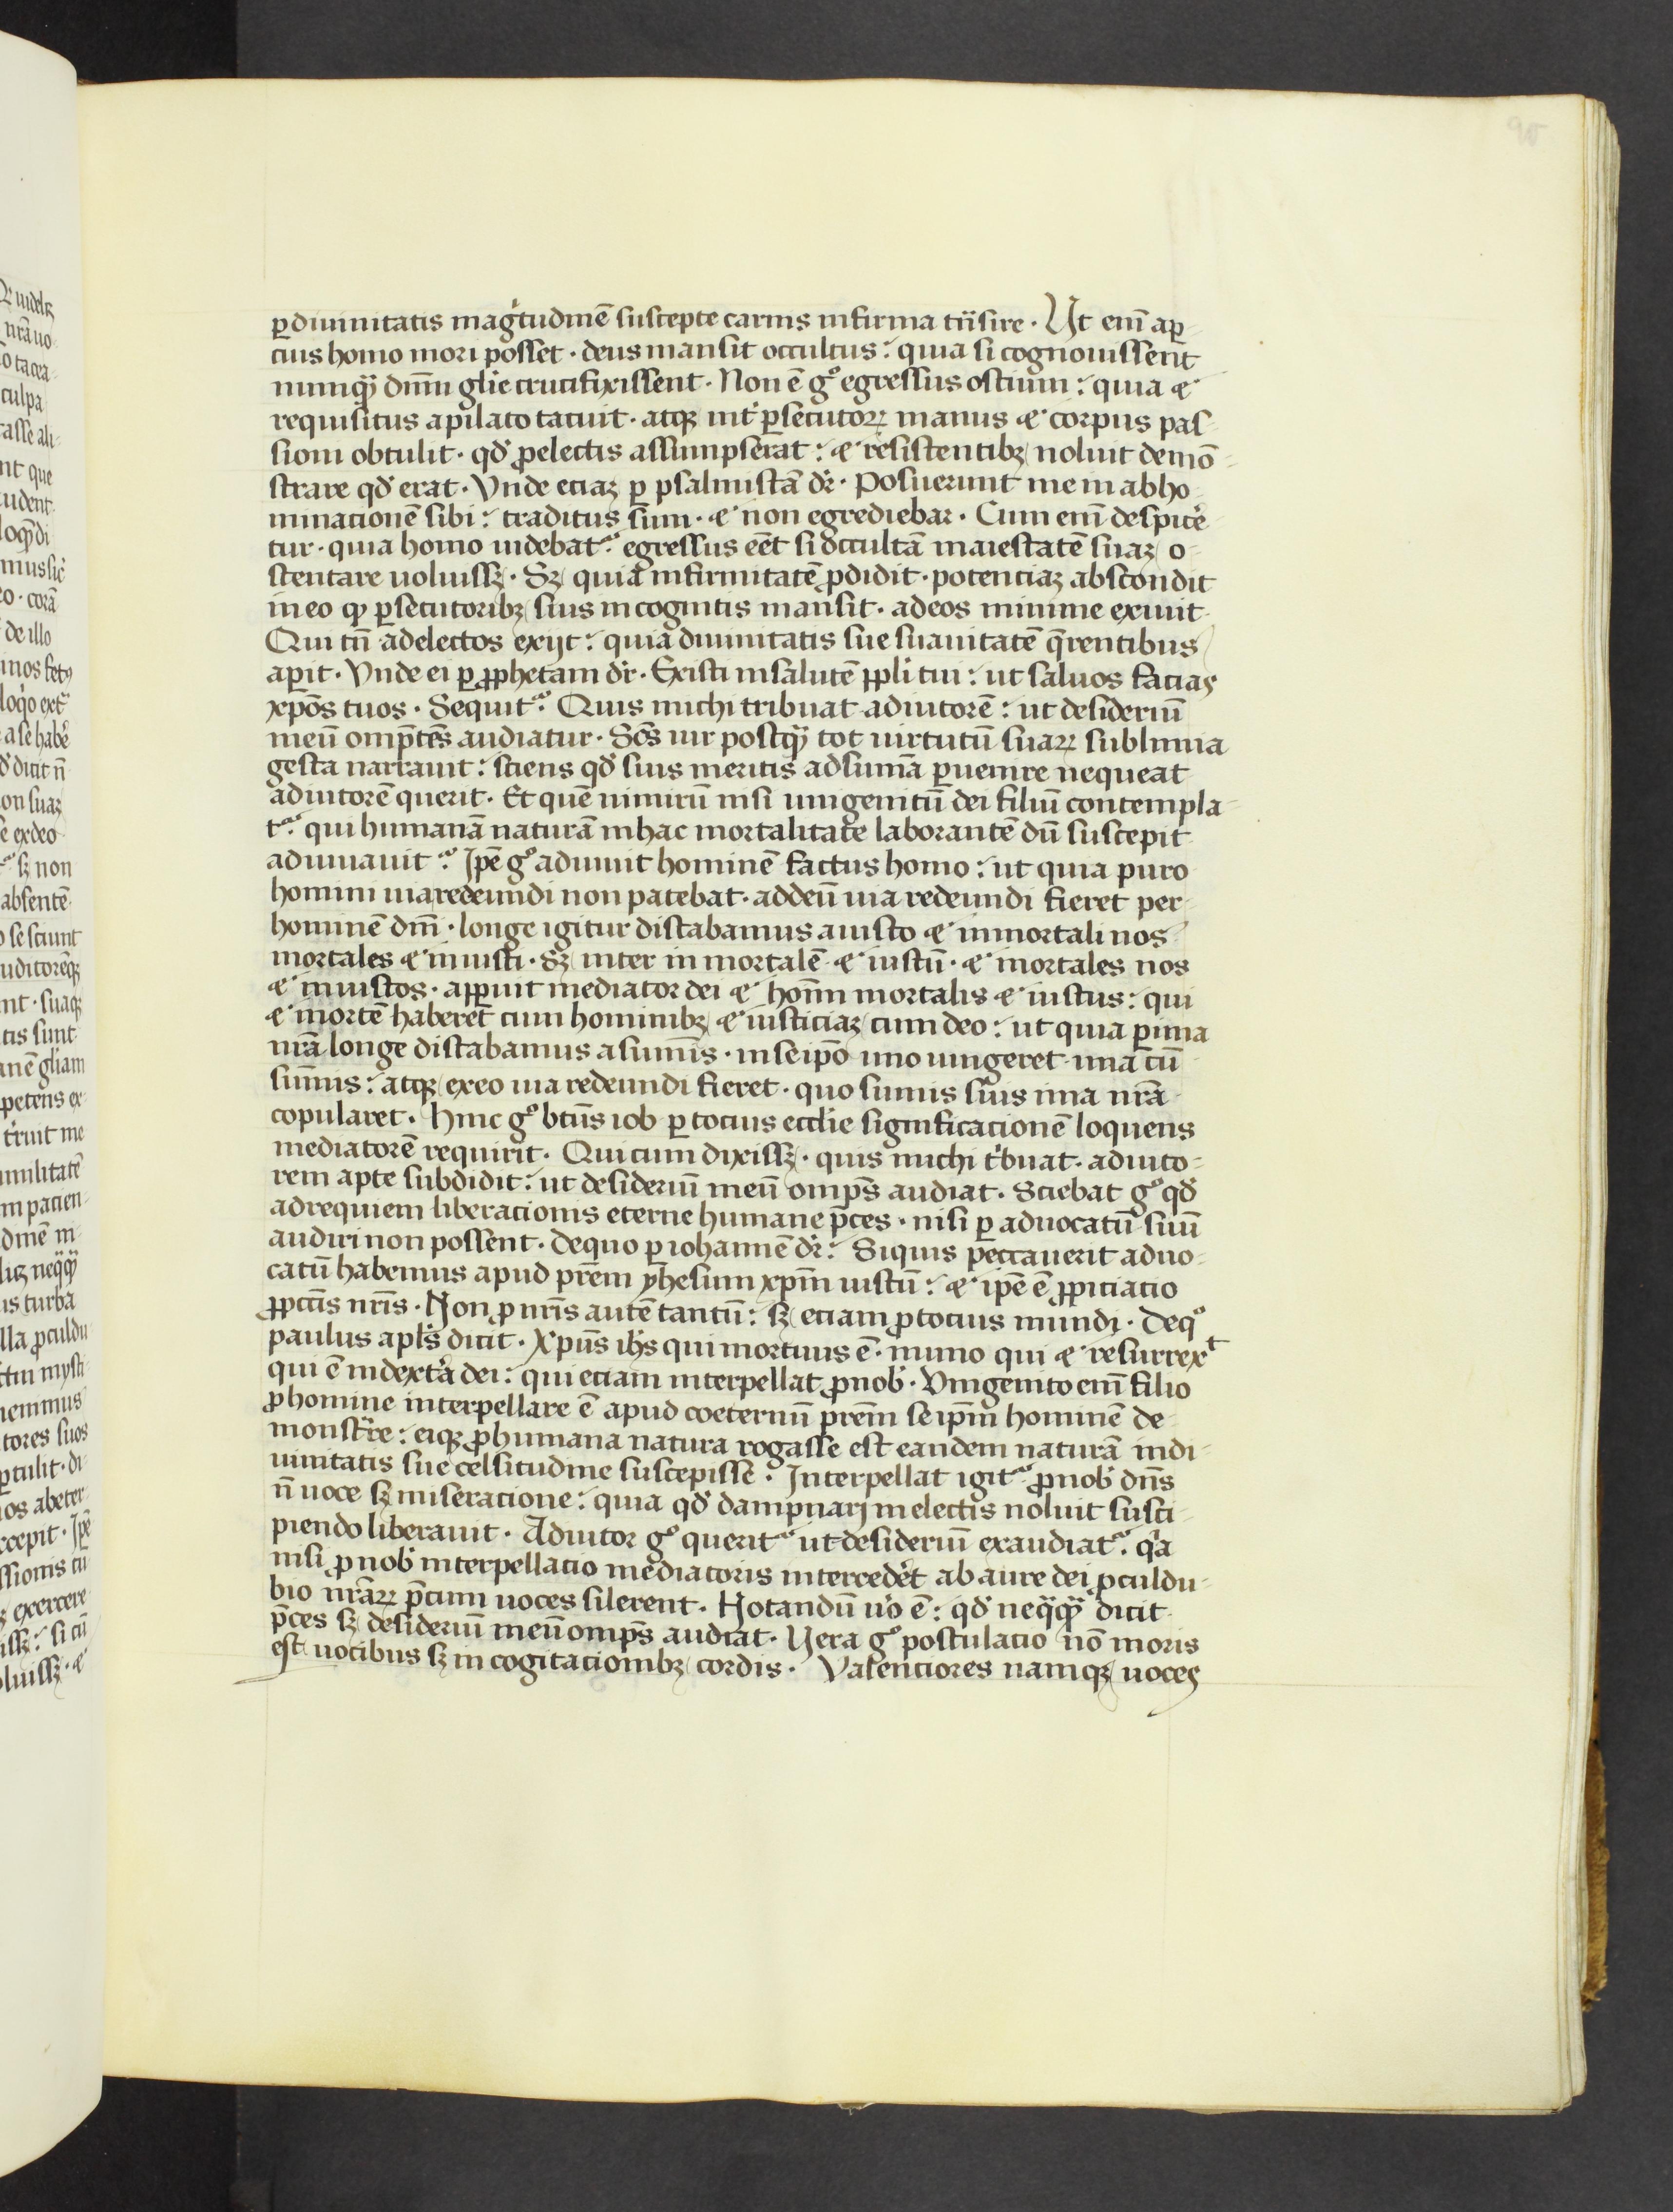 ꝑ diuinitatis magͥtudinē suscepte carnis infirma trāsire · Ut enī aꝑ-
cius homo mori posset · deus mansit occultus : quia si cognouissent
nunqᷓ dnm̄ glīe crucifixissent · Non ē gͦ egressus ostium : quia et
requisitus apilato tacuit · atqꝫ int̉ ꝑsecutoꝝ manus et corpus pas-
sioni obtulit · qđ ꝓelectis assumpserat : et resistentibꝫ noluit demō-
strare qđ erat · Vnde eciaꝫ ꝑ psalmistā dr̄ · Posuerunt me in abho-
minacionē sibi : traditus sum · et non egrediebar · Cum enī despicē-
tur · quia homo uidebatᷣ egressus eēt si occultā maiestatē suaꝫ o-
stentare uoluissꝫ · Sꝫ quia infirmitatē ꝓdidit · potenciaꝫ abscondit
in eo qꝫ ꝑsecutoribꝫ suis incognitis mansit · adeos minime exiuit
Qui tn̄ adelectos exijt : quia diuinitatis sue suauitatē q̄rentibus
aꝑit · Vnde ei ꝑ ꝓphetam dr̄ · Existi insalutē ppl̄i tui : ut saluos facias
xpōs tuos · Sequitᷣ Quis michi tribuat adiutorē : ut desideriū
meū omp̄tēs audiatur · Scōs uir postqᷓ tot uirtutū suaꝝ sublimia
gesta narrauit : sciens qđ suis meritis adsumā ꝑuenire nequeat
adiutorē querit · Et quē nimirū nisi unigenitū dei filiū contempla-
tᷣ qui humanā naturā inhac mortalitate laborantē dū suscepit
adiuuauit · Ipē gͦ adiuuit hominē factus homo : ut quia puro
homini uia redeundi non patebat · addeū uia redeundi fieret per
hominē dm̄ · longe igitur distabamus aiusto et inmortali nos
mortales et iniusti · Sꝫ inter inmortalē et iustū · et mortales nos
et iniustos · apparuit mediator dei et hoīm mortalis et iustus : qui
et mortē haberet cum hominibꝫ et iusticiaꝫ cum deo : ut quia ꝑ ima
nrā longe distabamus asum̄is · inseipō uno iungeret ima cū
sum̄is : atqꝫ exeo uia redeundi fieret · quo sumis suis ima nrā
copularet · Hinc gͦ btūs iob ꝑ tocius eccl̄ie significacionē loquens
mediatorē requirit · Qui cum dixissꝫ · quis michi tͥbuat · adiuto-
rem apte subdidit : ut desideriū meū omp̄s audiat · Sciebat gͦ qđ
adrequiem liberacionis eterne humane p̄ces · nisi ꝑ aduocatū suū
audiri non possent · dequo ꝑ iohannē dr̄ : Siquis peccauerit aduo-
catū habemus apud prēm yhesum xpm̄ iustū : et ipē ē ꝓpiciacio
ꝓpctīs nrīs · Non ꝓ nrīs autē tantū : sꝫ eciam ꝓtocius mundi · Deqͦ
paulus apl̄s dicit · Xpūs ihs̄ qui mortuus ē · immo qui et resurrexͭ
qui ē indextᷓa dei : qui eciam interpellat ꝓnob̄ · Vnigenito enī filio
ꝓhomine interpellare ē apud coeternū prēm seipm̄ hominē de-
monstᷓre : eiqꝫ ꝓhumana natura rogasse est eandem naturā indi-
uinitatis sue celsitudine suscepisse · Interpellat igitᷣ ꝓnob̄ dn̄s
n̄ uoce sꝫ miseracione : quia qđ dampnarj inelectis noluit susci-
piendo liberauit · Adiutor gͦ queritᷣ ut desideriū exaudiatᷣ · qͥa
nisi ꝓ nob̄ interpellacio mediatoris intercedēt ab aure dei ꝓculdu-
bio nrāꝝ p̄cum uoces silerent · Notandū uͦo ē : qđ neqᷓqᷓ dicit
p̄ces sꝫ desideriū meū omp̄s audiat · Uera gͦ postulacio nō in oris
est uocibus sꝫ in cogitacionibꝫ cordis · Valenciores namqꝫ uoces